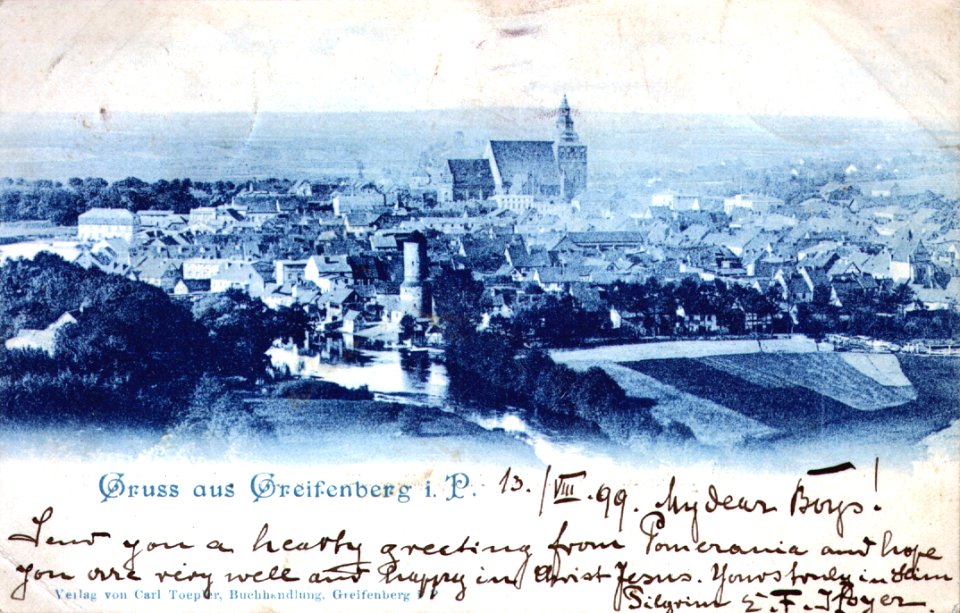 Gruss aus Greifenberg i. P. 13./VIII.99. My dear Boys!
Send you a hearty greeting from Pomerania and hope
you are very well and happy in Christ Jesus. Yours truly in
Verlag von Carl Toepfer, Buchhandlung, Greifenberg i. P.
Pilgrim E. F.